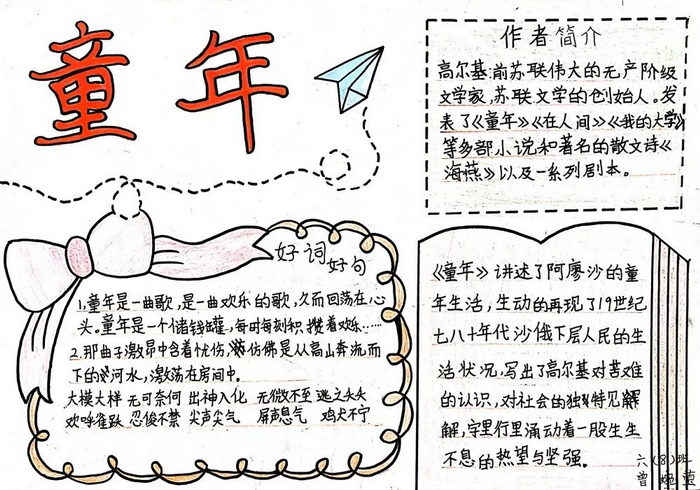 童年
作者简介
高尔基:前苏联伟大的无产阶级
文学家,苏联文学的创始人。发
表了《童年》《在人间》《我的大学》
等多部小说和著名的散文诗《
海燕》以及一系列剧本。
好词
好句
1.童年是一曲歌,是一曲欢乐的歌,久而回荡在心
头。童年是一个储钱罐,每时每刻积攒着欢乐……
2.那曲子激昂中含着忧伤,仿佛是从高山奔流而
下的河水,激荡在房间中。
大模大样 无可奈何 出神入化 无微不至 逃之夭夭
欢呼雀跃 忍俊不禁 尖声尖气 屏声息气 鸡犬不宁
《童年》讲述了阿廖沙的童
年生活,生动的再现了19世纪
七八十年代沙俄下层人民的生
活状况,写出了高尔基对苦难
的认识,对社会的独特见解
解,字里行里涌动着一股生生
不息的热望与坚强。
六(8)班
曾婉莹